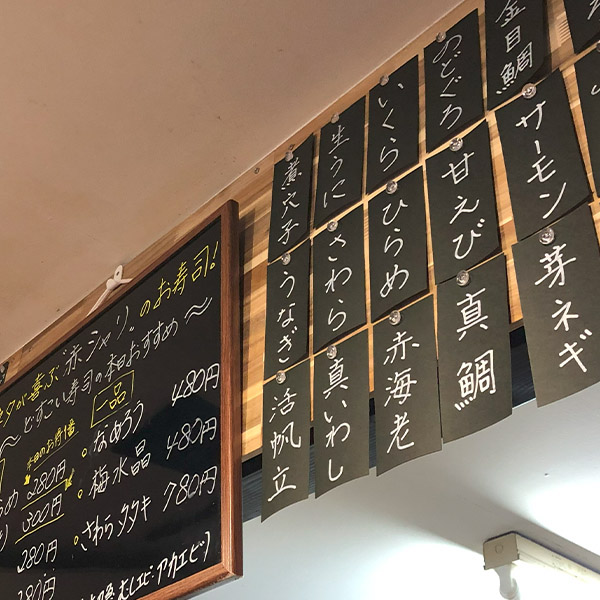 が喜ぶ"赤シャリ"のお寿司!
～どすこい寿司の本日おすすめ～
本日のお刺身
一品
280円
300円
280円
280円
なめろう 480円
梅水晶 480円
さわらタタキ 780円
むしエビ・アカエビ
金目鯛
のどぐろ
いくら
生うに
煮穴子
サーモン
甘えび
ひらめ
さわら
うなぎ
芽ネギ
真鯛
赤海老
真いわし
活帆立